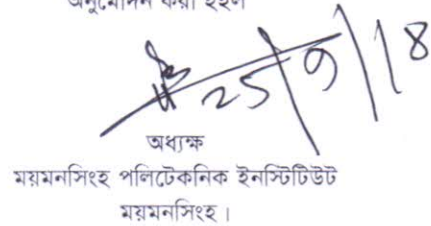 অনুমোদন করা হইল
25/9/18
অধ্যক্ষ
ময়মনসিংহ পলিটেকনিক ইনস্টিটিউট
ময়মনসিংহ।